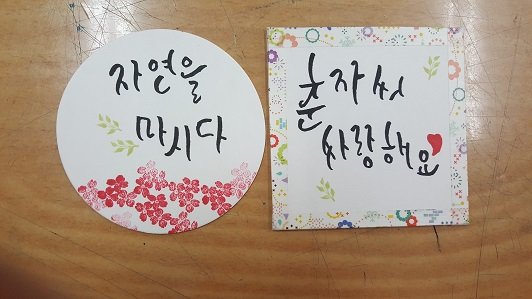 자연을
마시다
춘자씨
싸랑해요